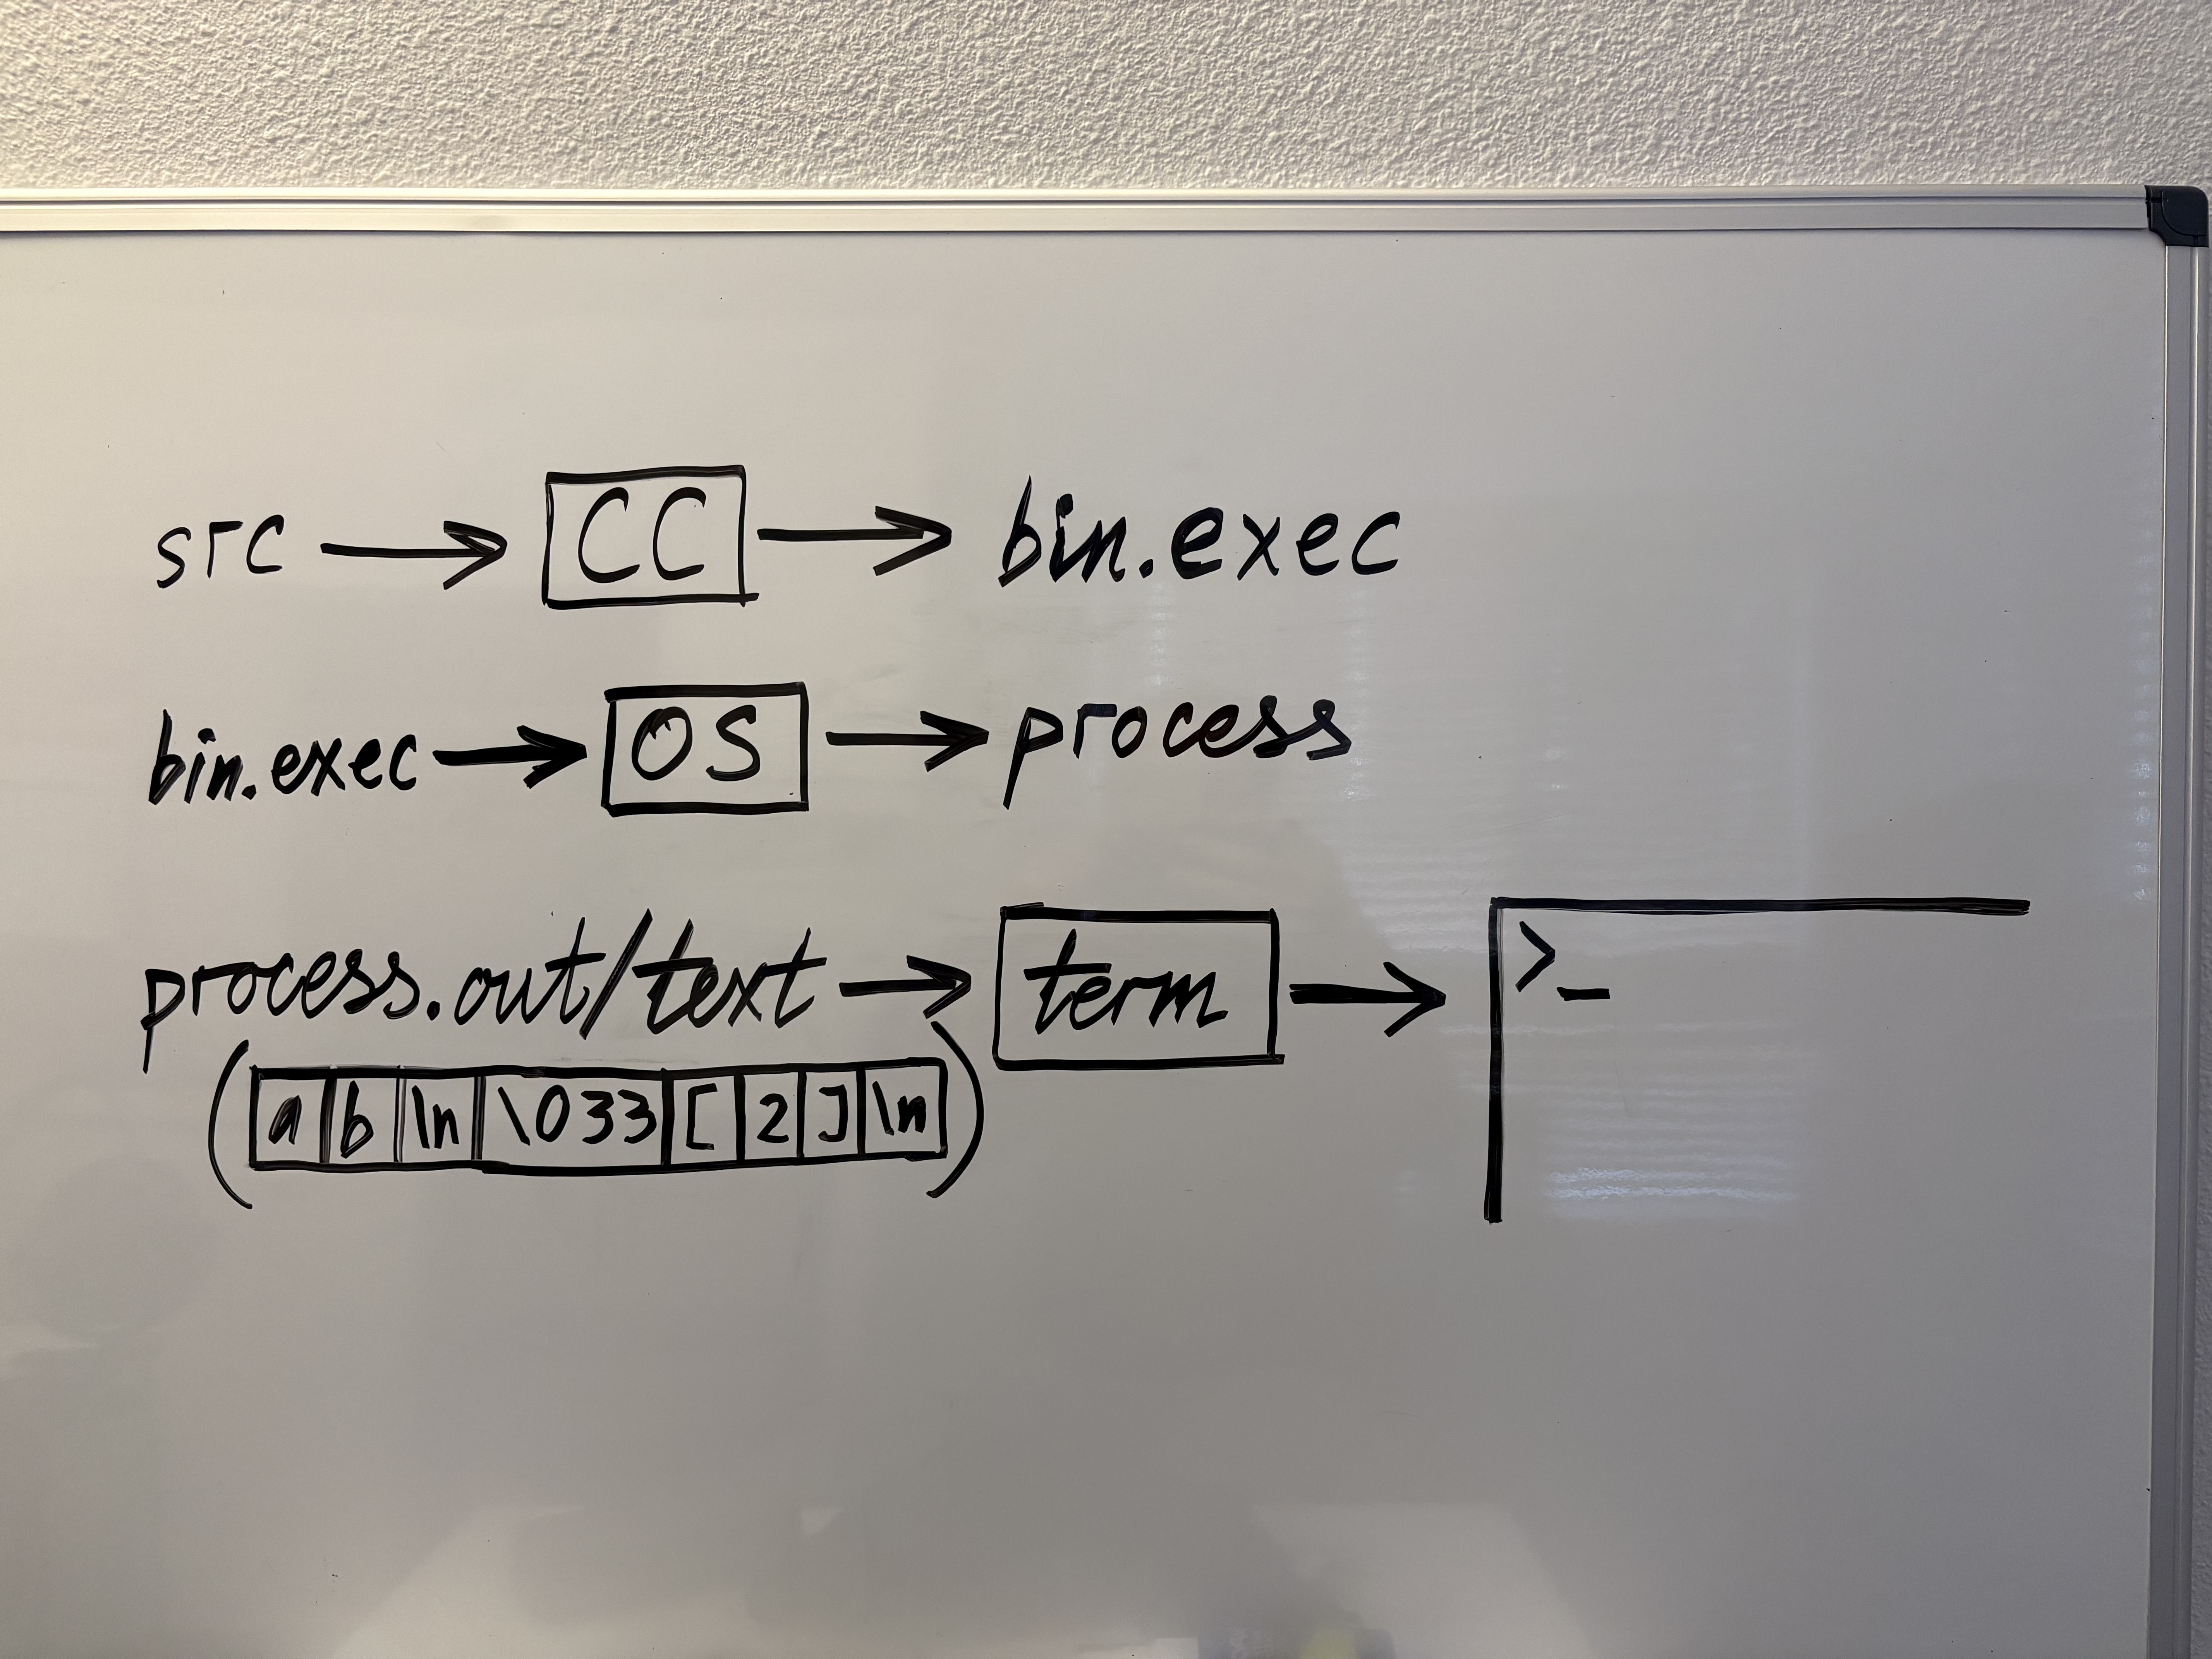 src → CC → bin.exec
bin.exec → OS → process
process.out/text → term → >_
(a b \n \033 [ 2 ] \n)